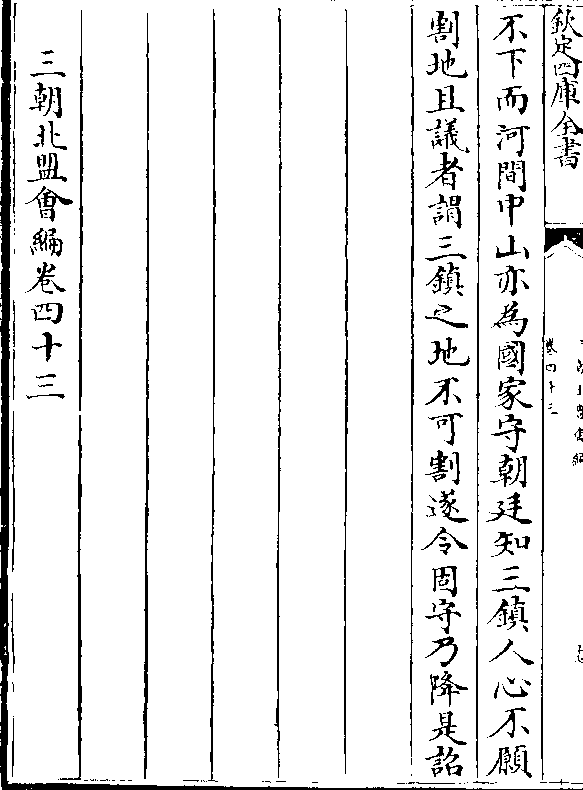 欽定四庫全書
卷四十三
不下而河間中山亦為國家守朝廷知三鎮人心不願
割地且議者謂三鎮之地不可割遂令固守乃降是詔
三朝北盟㑹編卷四十三